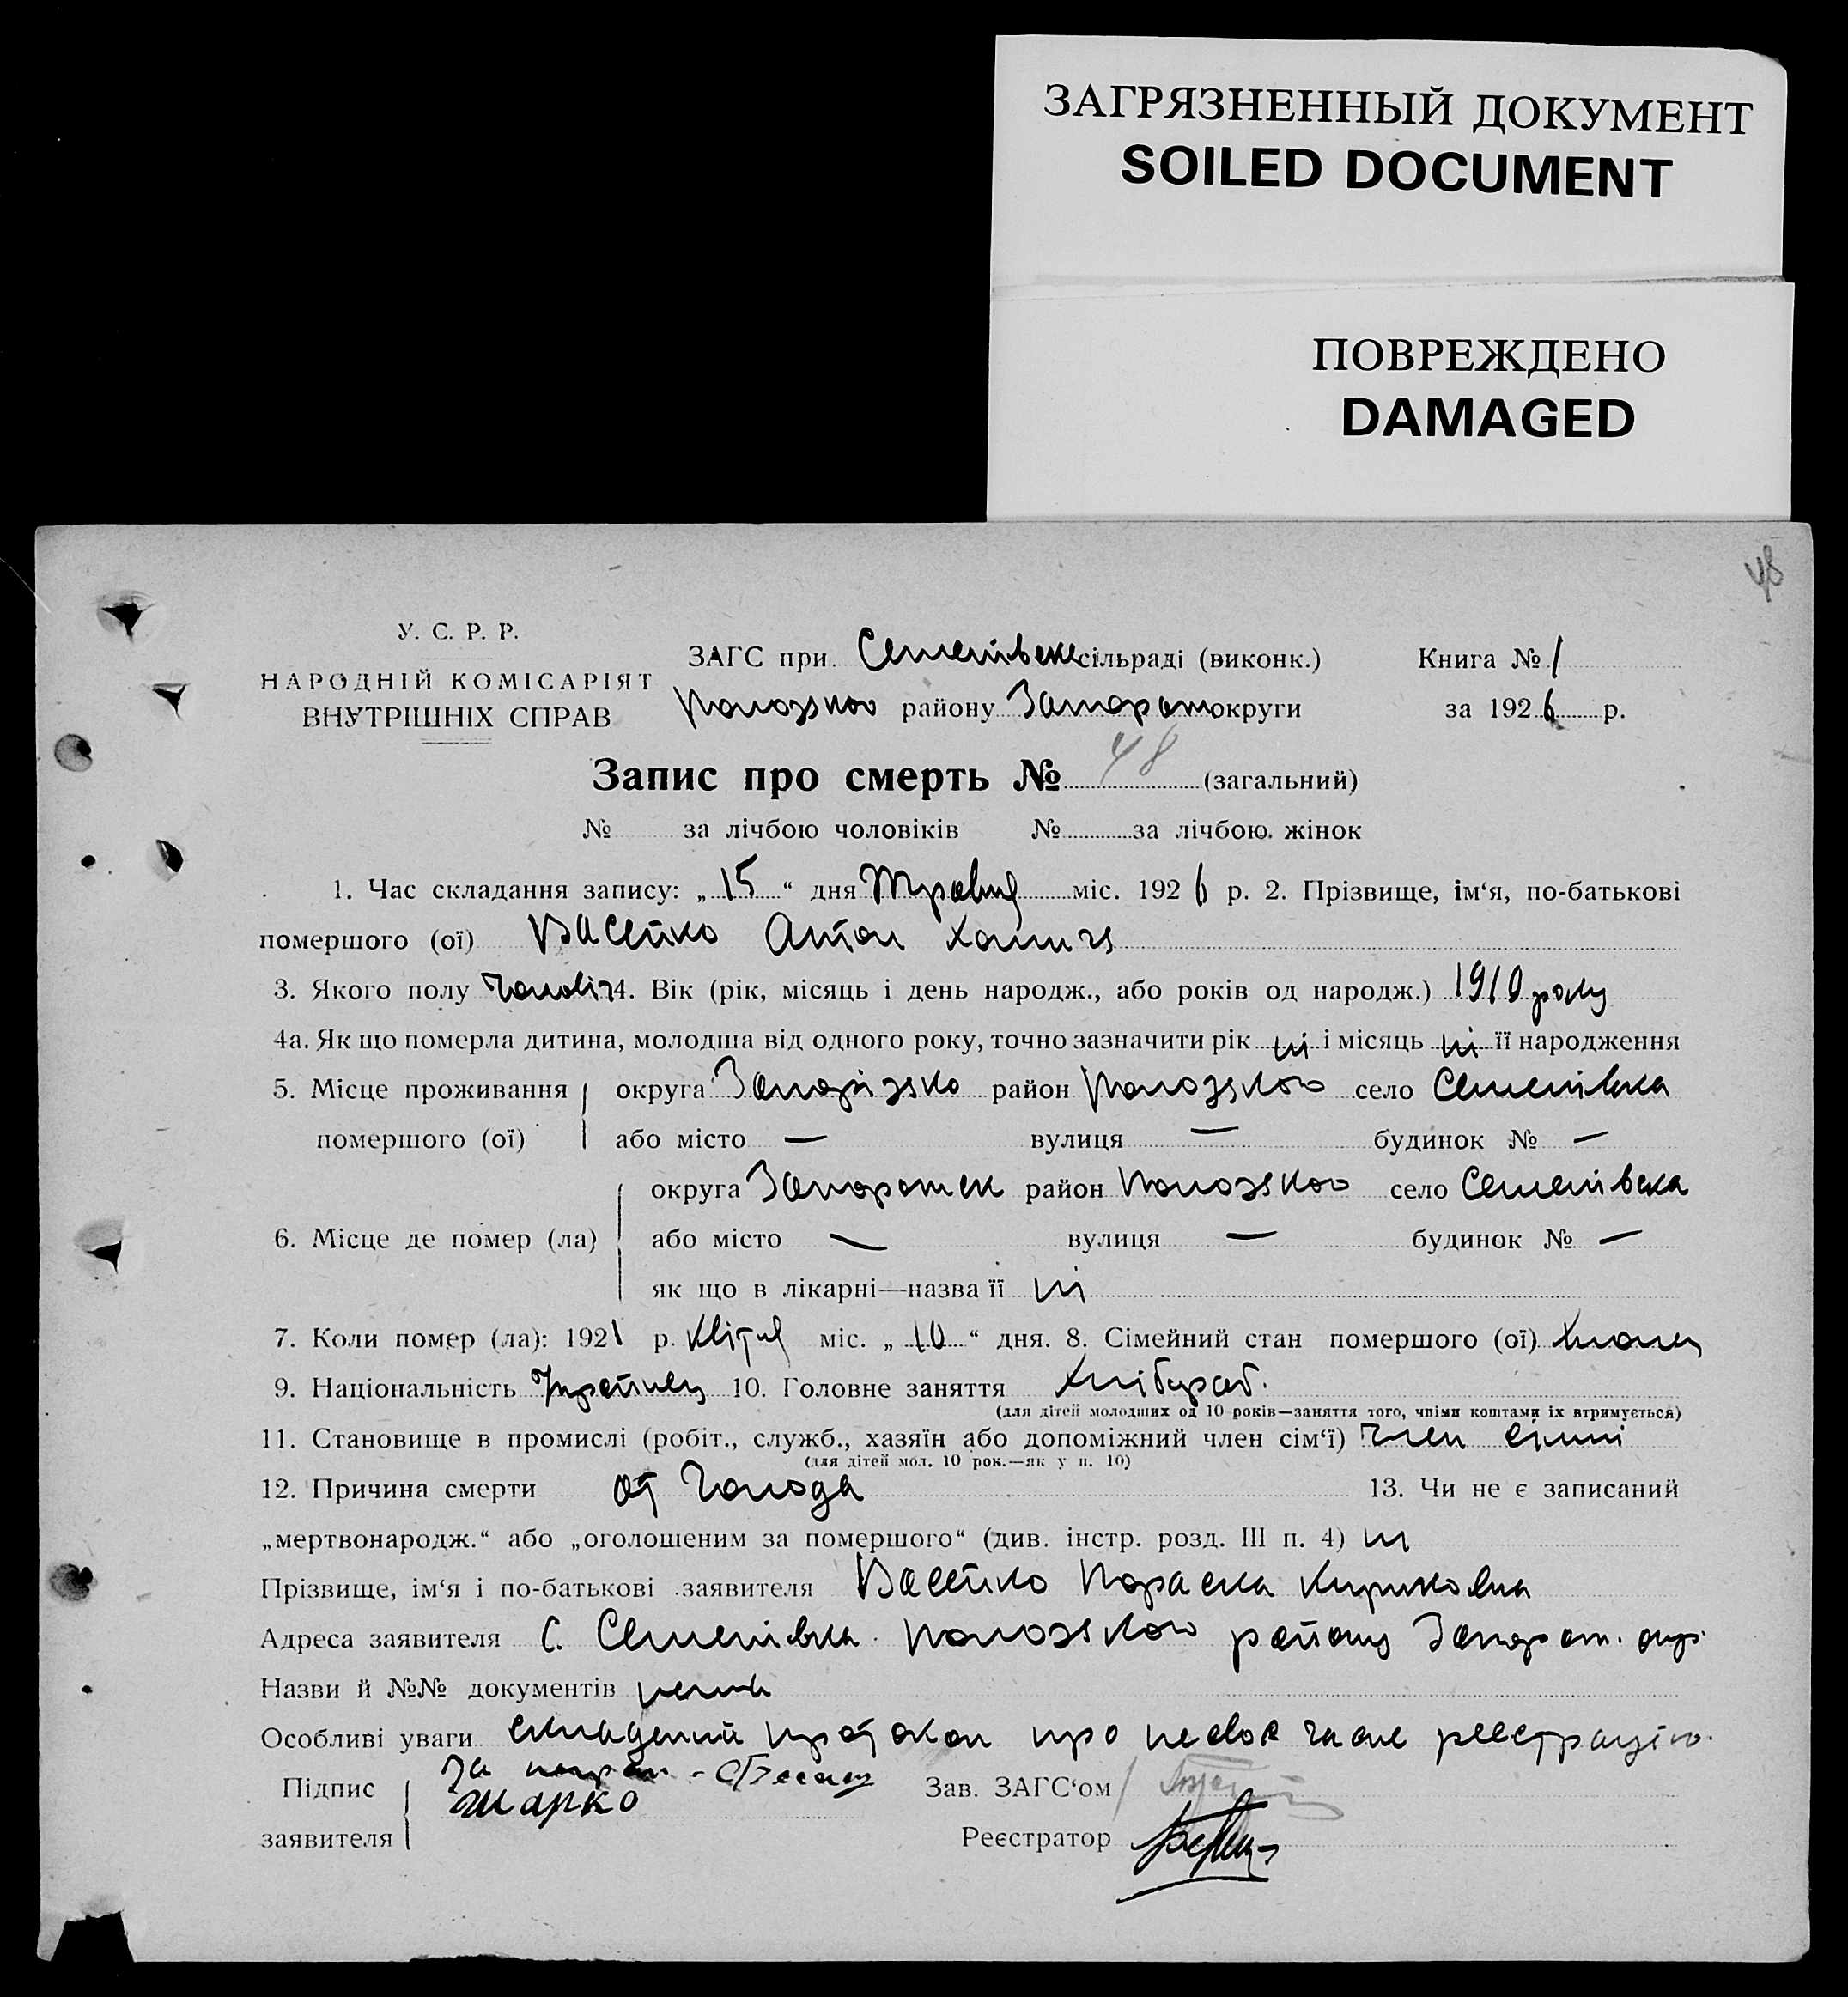 ЗАГРЯЗНЕННЫЙ ДОКУМЕНТ
SOILED DOCUMENT
ПОВРЕЖДЕНО
DAMAGED
48
У. С. Р. Р.
НАРОДНІЙ КОМІСАРІЯТ
ВНУТРІШНІХ СПРАВ
ЗАГС при Семенівське сільраді (виконк.) Книга № 1
Пологского району Запорож округи за 1926 р.
Запис про смерть № 48 (загальний)
№ за лічбою чоловіків № за лічбою жінок
1. Час складання запису: „15“ дня Травня міс. 1926 р. 2. Прізвище, ім‘я, по-батькові
помершого (ої) Васейко Антон
3. Якого полу чоловіч 4. Вік (рік, місяць і день народж., або років од народж.) 1910 року
4а. Як що померла дитина, молодша від одного року, точно зазначити рік ні і місяць ні її народження
5. Місце проживання округа Запорізька район Пологського село Семенівка
помершого (ої) або місто — вулиця — будинок № —
округа Запорожск район Пологського село Семенівка
6. Місце де помер (ла) або місто — вулиця — будинок № —
як що в лікарні—назва її ні
7. Коли помер (ла): 1921 р. Квітня міс. „10“ дня. 8. Сімейний стан помершого (ої)
9. Національність Українец 10. Головне заняття Хлібороб.
(для дітей молодших од 10 років—заняття того, чпіми коштами іх втримується)
11. Становище в промислі (робіт., служб., хазяїн або допоміжний член сім‘ї) член сімї
(для дітей мол. 10 рок.—як у п. 10)
12. Причина смерти от голода 13. Чи не є записаний
„мертвонародж.“ або „оголошеним за помершого“ (див. інстр. розд. III п. 4) ні
Прізвище, ім‘я і по-батькові заявителя Васейко Параска Кириковна
Адреса заявителя С. Семенівка Пологського району Запорож. окр.
Назви й №№ документів нема
Особливі уваги складений протокол про несвоєчасне реєстрацію.
Підпис За неграм. Зав. ЗАГС‘ом
заявителя Шарко Реєстратор